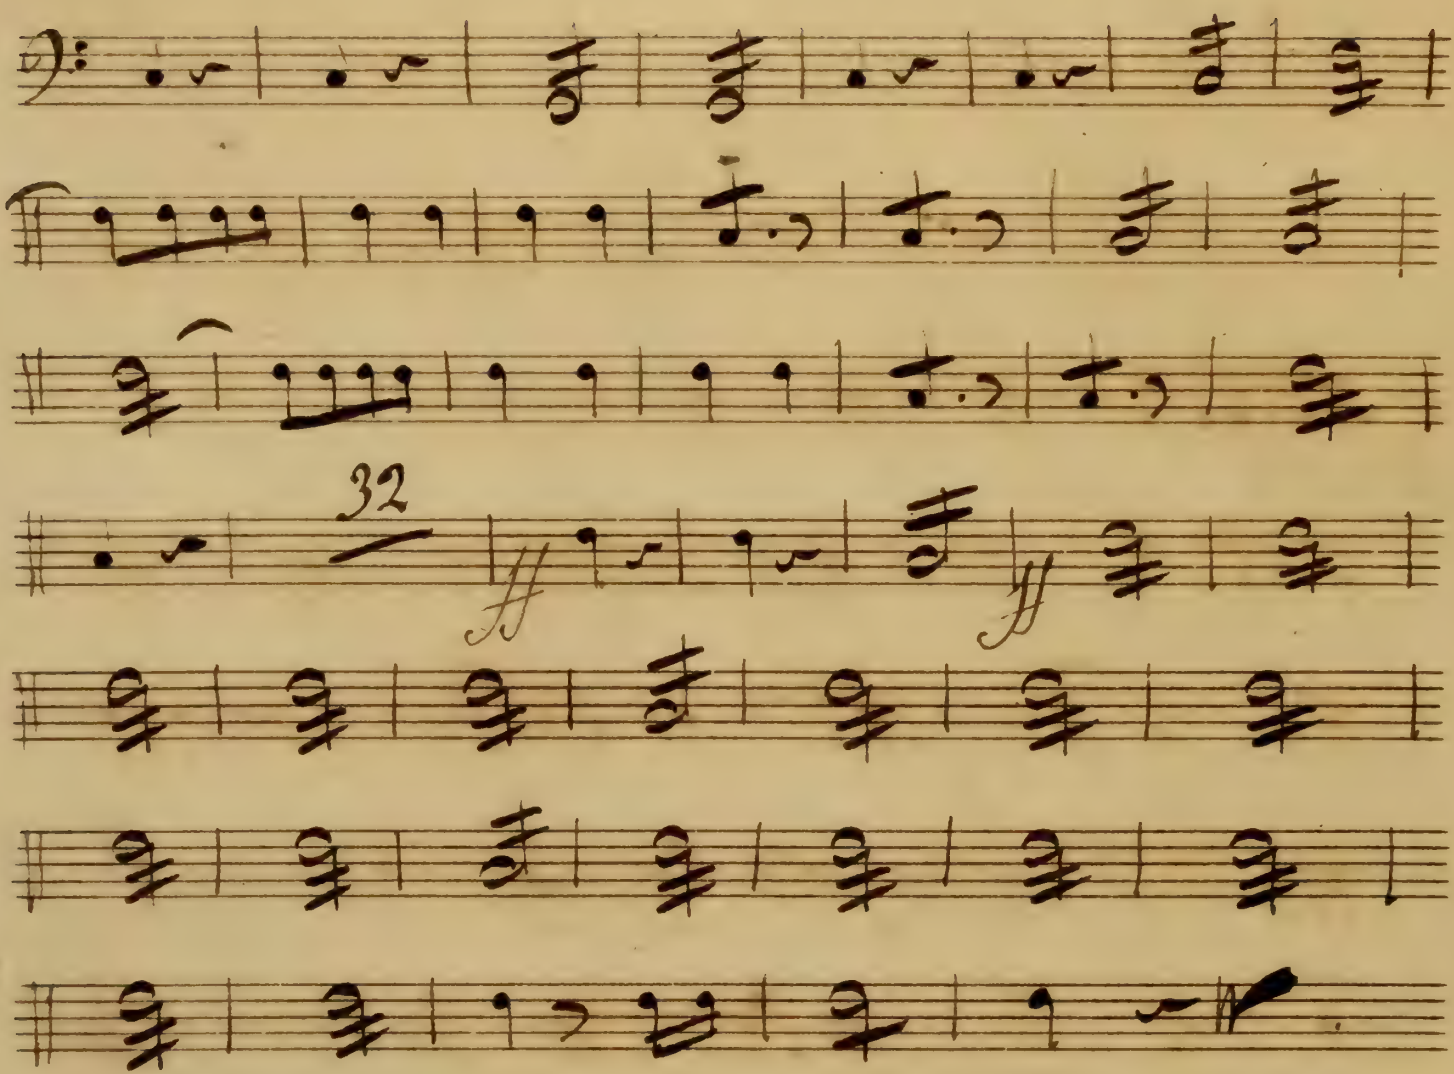 32
ff ff